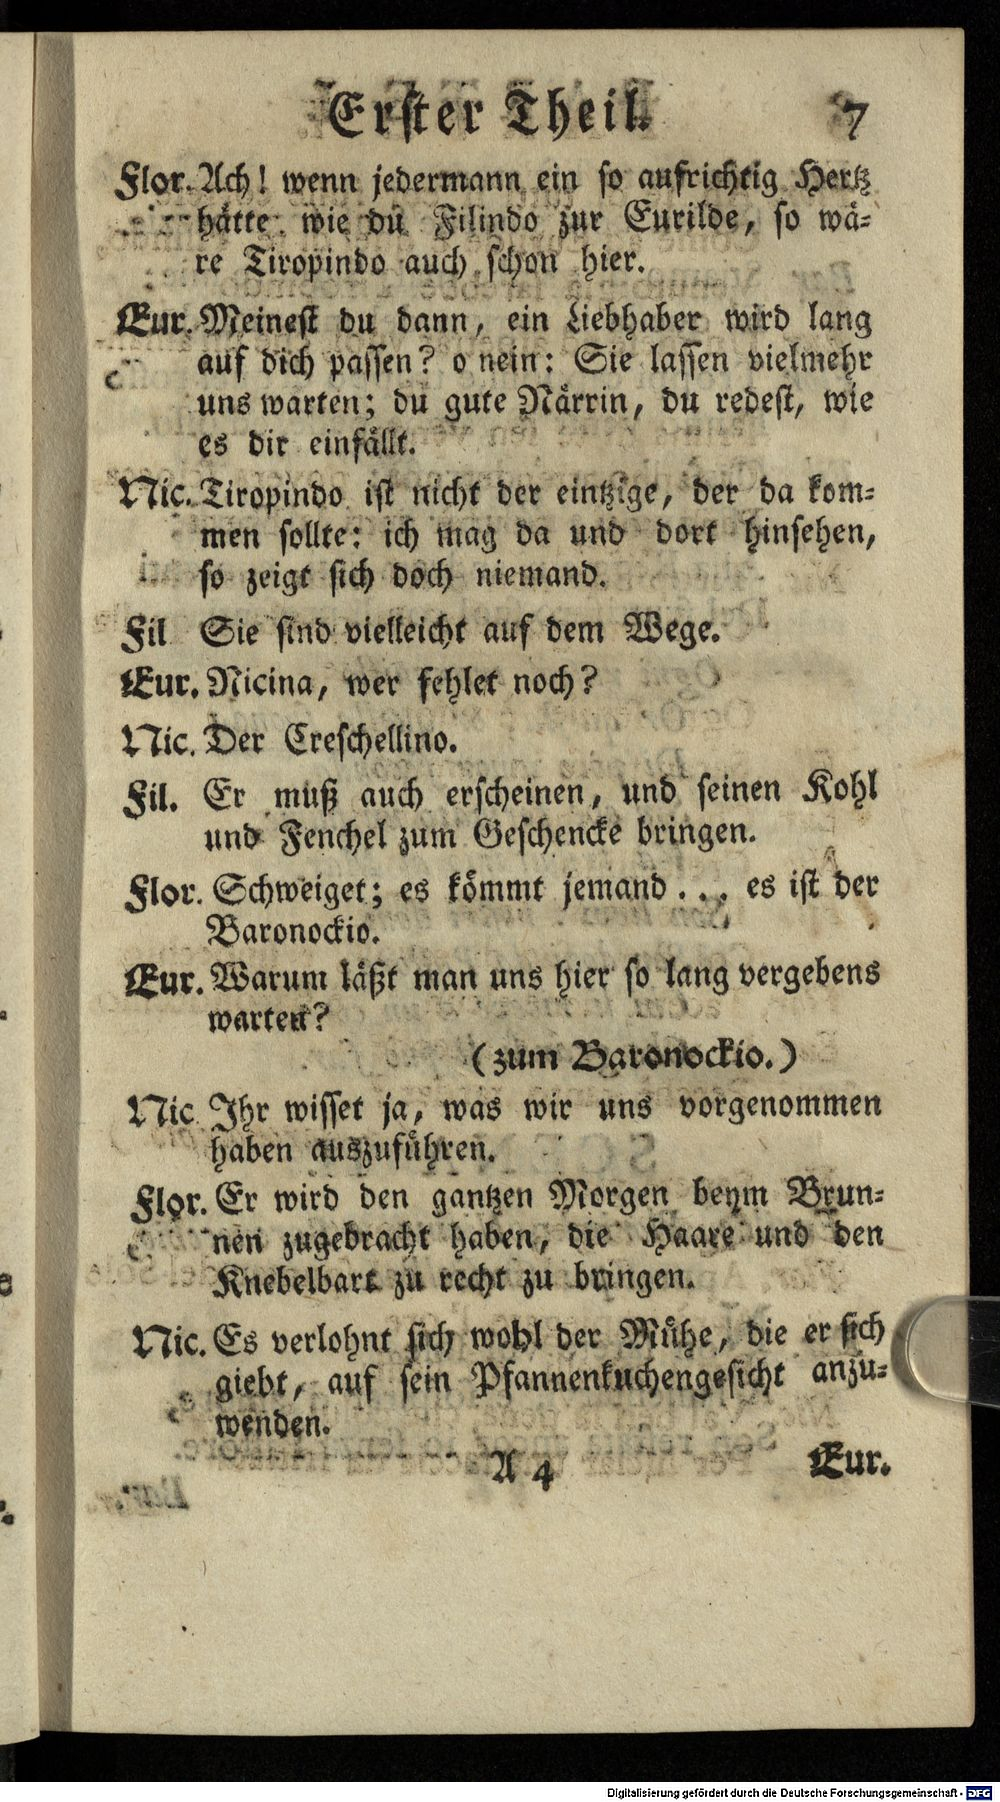 Erster Theil. 7
Flor. Ach! wenn jedermann ein so aufrichtig Hertz
hätte wie du Filindo zur Eurilde, so wä-
re Tiropindo auch schon hier.
Eur. Meinest du dann, ein Liebhaber wird lang
auf dich passen? o nein: Sie lassen vielmehr
uns warten; du gute Närrin, du redest, wie
es dir einfällt.
Nic. Tiropindo ist nicht der eintzige, der da kom-
men sollte: ich mag da und dort hinsehen,
so zeigt sich doch niemand.
Fil Sie sind vielleicht auf dem Wege.
Eur. Nicina, wer fehlet noch?
Nic. Der Creschellino.
Fil. Er muß auch erscheinen, und seinen Kohl
und Fenchel zum Geschencke bringen.
Flor. Schweiget; es kömmt jemand . . . es ist der
Baronockio.
Eur. Warum läßt man uns hier so lang vergebens
warten?
(zum Baronockio.)
Nic Ihr wisset ja, was wir uns vorgenommen
haben auszuführen.
Flor. Er wird den gantzen Morgen beym Brun-
nen zugebracht haben, die Haare und den
Knebelbart zu recht zu bringen.
Nic. Es verlohnt sich wohl der Mühe, die er sich
giebt, auf sein Pfannenkuchengesicht anzu-
wenden.
A 4 Eur.
Digitalisierung gefördert durch die Deutsche Forschungsgemeinschaft - DFG